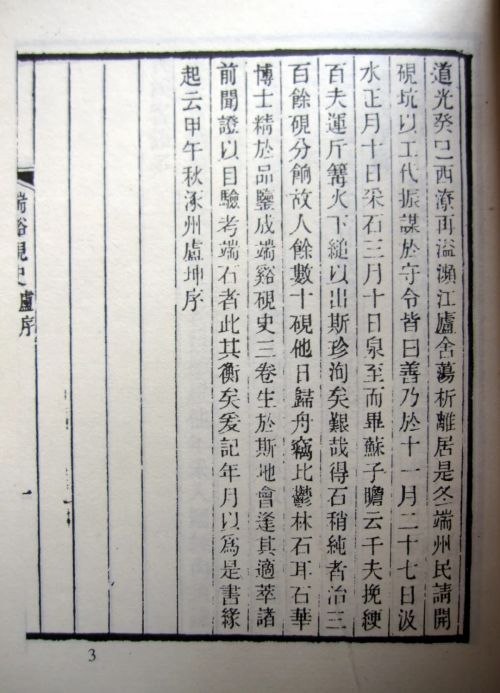 道光癸巳西潦再溢瀕江廬舍蕩析離居是冬端州民請開
硯坑以工代振謀於守令皆曰善乃於十一月二十七日汲
水正月十日采石三月十日泉至而畢蘇子瞻云千夫挽綆
百夫運斤篝火下縋以出斯珍洵矣艱哉得石稍純者治三
百餘硯分餉故人餘數十硯他日歸舟竊比鬱林石耳石華
博士精於品鑒成端谿硯史三卷生於斯地會逢其適萃諸
前聞證以目驗考端石者此其衡矣爰記年月以為是書緣
起云甲午秋涿州盧坤序
端谿硯史 盧序
一
3